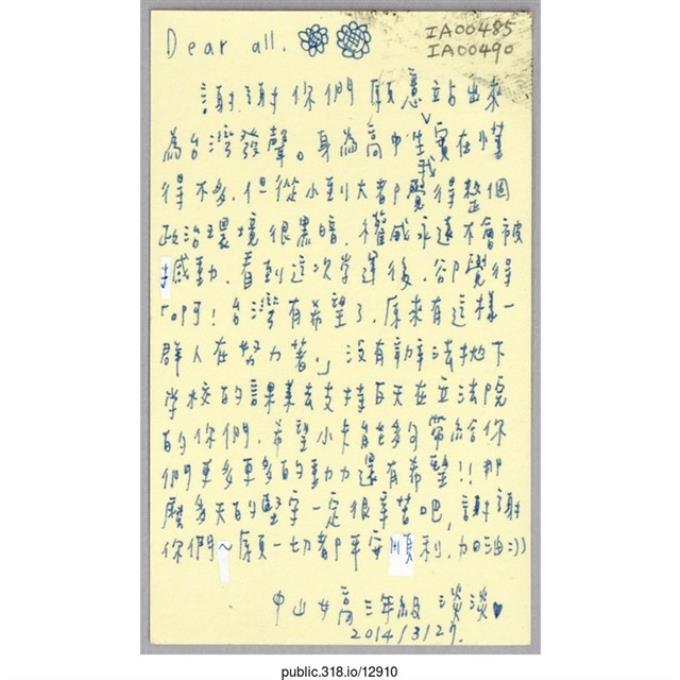 Dear all.
IA00485
IA00490
謝謝你們願意站出來
為台灣發聲。身為高中生實在懂
得不多,但從小到大都覺得整個
我
政治環境很黑暗,權威永遠不會被
感動,看到這次學運後,卻覺得
「啊!台灣有希望了,原來有這樣一
群人在努力著。」沒有辦法拋下
學校的課業去支持每天在立法院
的你們,希望小卡能夠帶給你
們更多更多的動力還有希望!!那
麼多天的堅守一定很辛苦吧,謝謝
你們~願一切都平安順利,加油:))
中山女高三年級 淡淡♥
2014/3/27.
public.318.io/12910